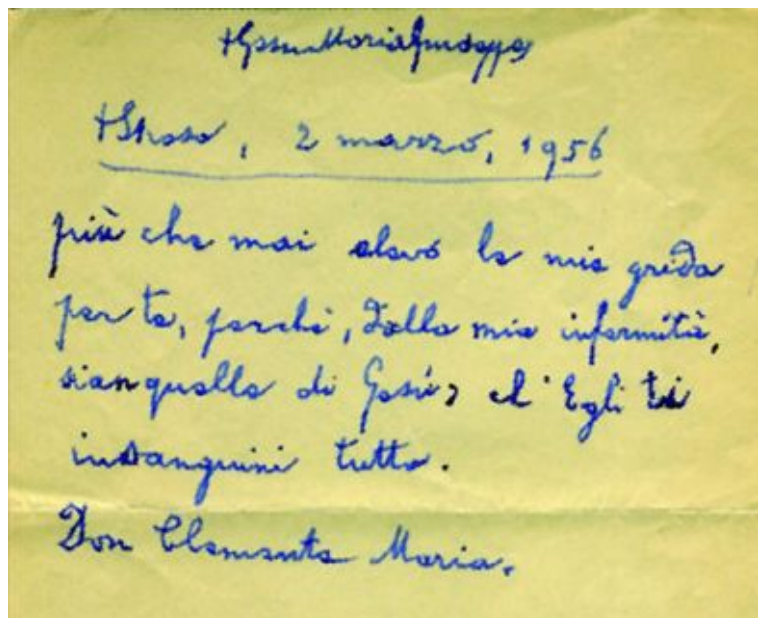 +Gesù Maria Giuseppe
, 2 marzo, 1956
più che mai elevo le mie grida
per te, perché, dalla mia infermità,
sian quelle di Gesù, ch'Egli ti
insanguini tutto.
Don Clemente Maria.